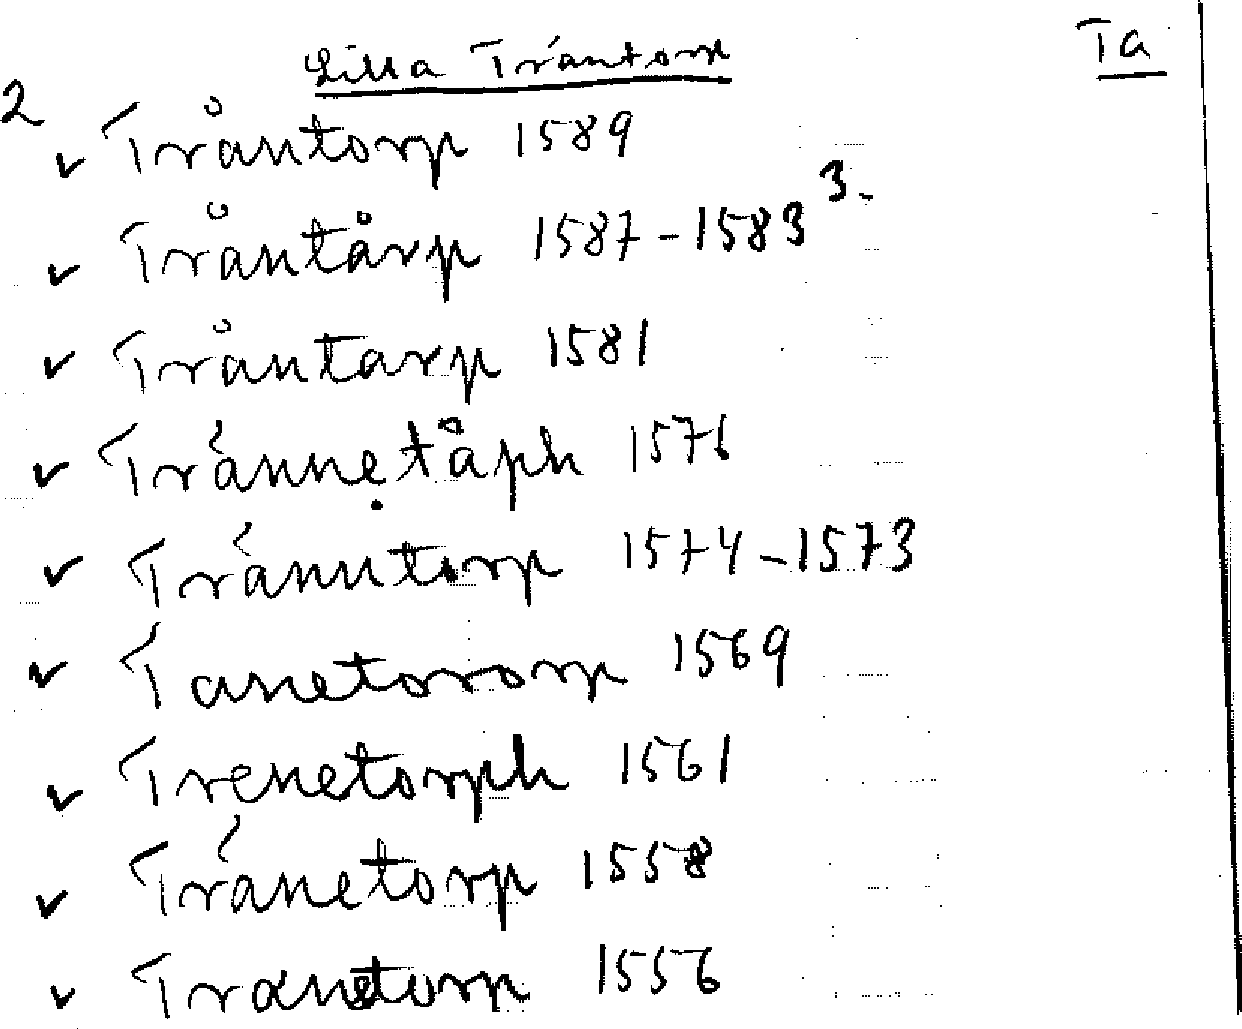 Lilla Tråntorp Ta
2
✓ Tråntorp 1589
✓ Tråntårp 1587-1583 3.
✓ Tråntarp 1581
✓ Tránnetåph 1576
✓ Tránntorp 1574-1573
✓ Tanetororp 1569
✓ Trenetorph 1561
✓ Tránetorp 1558
✓ Tranetorp 1556